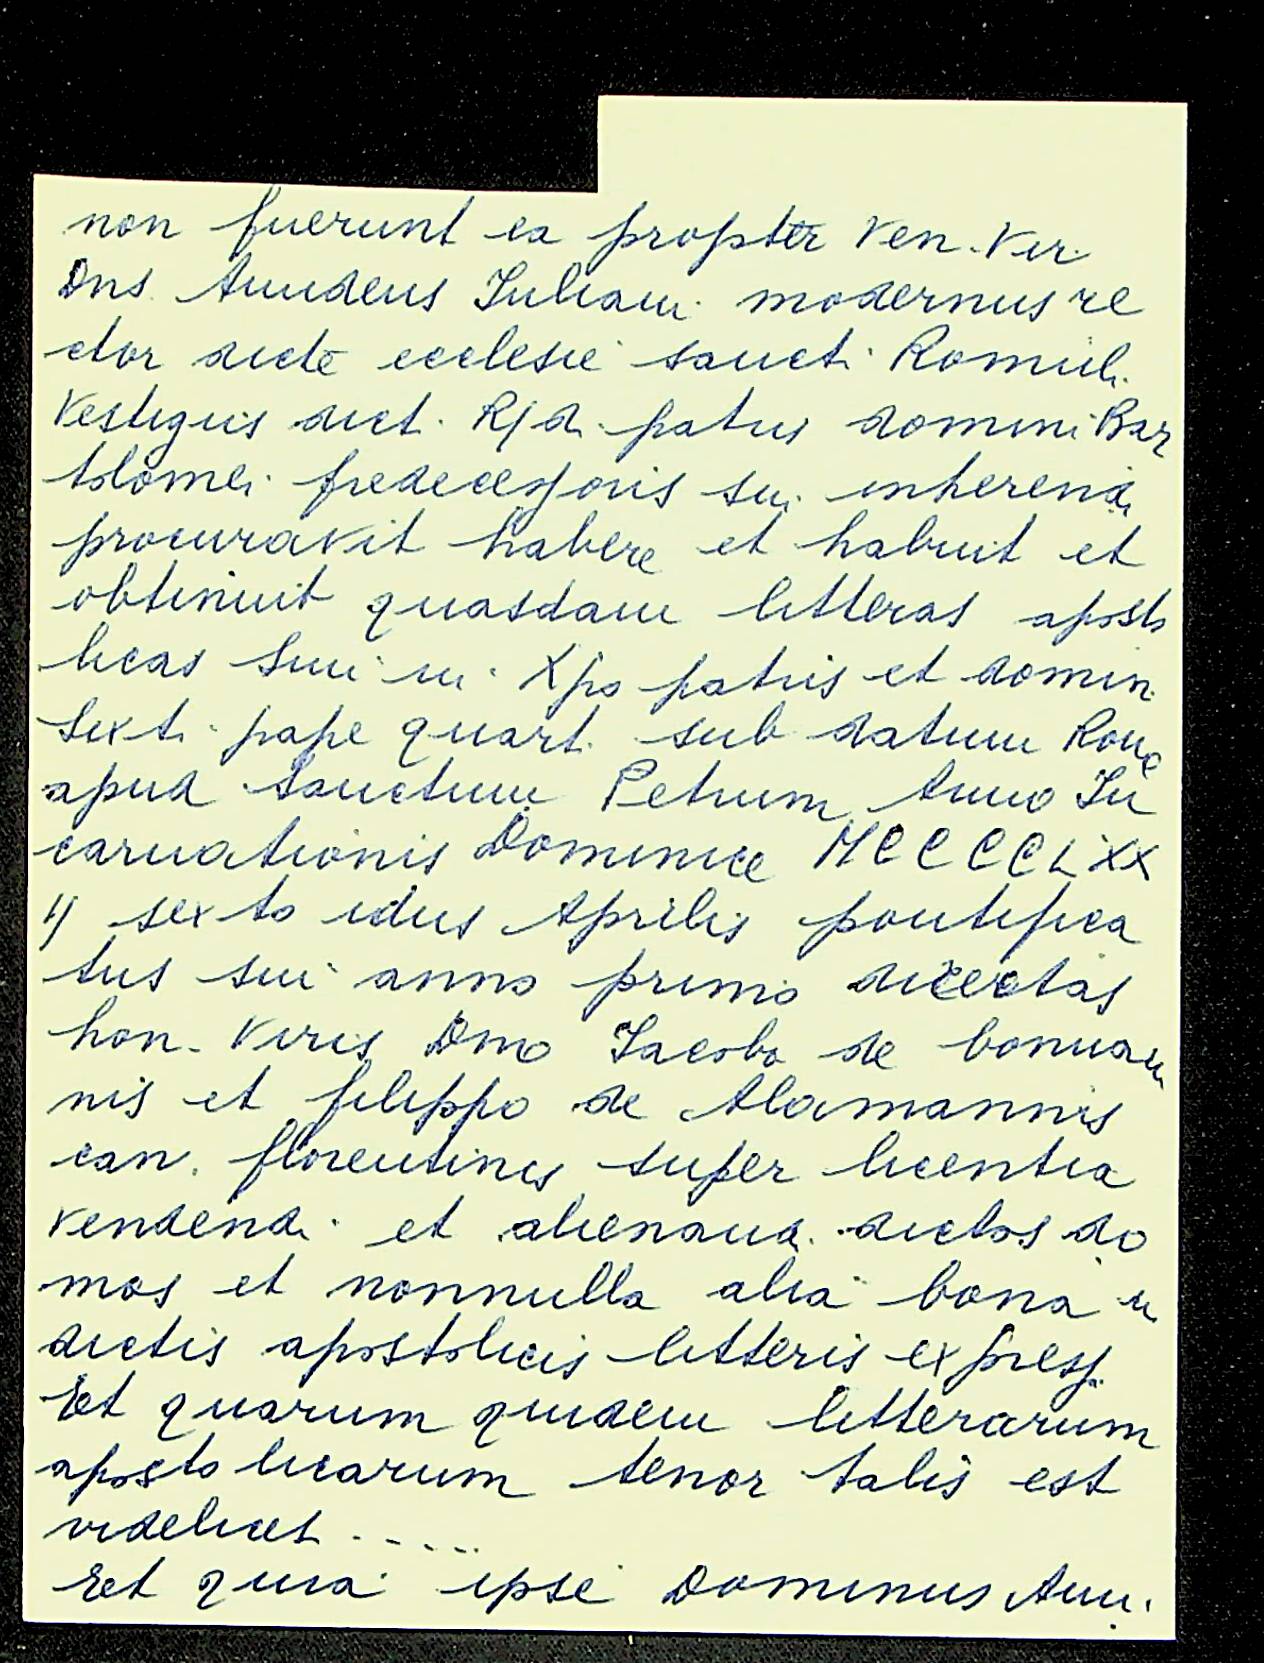 non fuerunt ea propter Ven. Vir.
Dns. Amideus Iuliani modernus re
ctor dicte ecclesie sancti Romuli.
Vestigiis dict. R/d. patris domini Bar
tolomei predecessoris sui inherendi
procuravit habere et habuit et
obtinuit quasdam litteras aposto
licas Smi in Xpo patris et domin.
Sixti pape quart. sub datum Rome
apud Sanctum Petrum Anno In
carnationis Dominice MCCCCLXX
ij sexto idus Aprilis pontifica
tus sui anno primo directas
hon. viris Dmo Iacobo de bonuan
nis et filippo de Alamannis
can. florentinis super licentia
vendendi et alienandi dictas do
mos et nonnulla alia bona in
dictis apostolicis litteris express.
Et quarum quidem litterarum
apostolicarum tenor talis est
videlicet .....
Et quia ipse Dominus Ami.